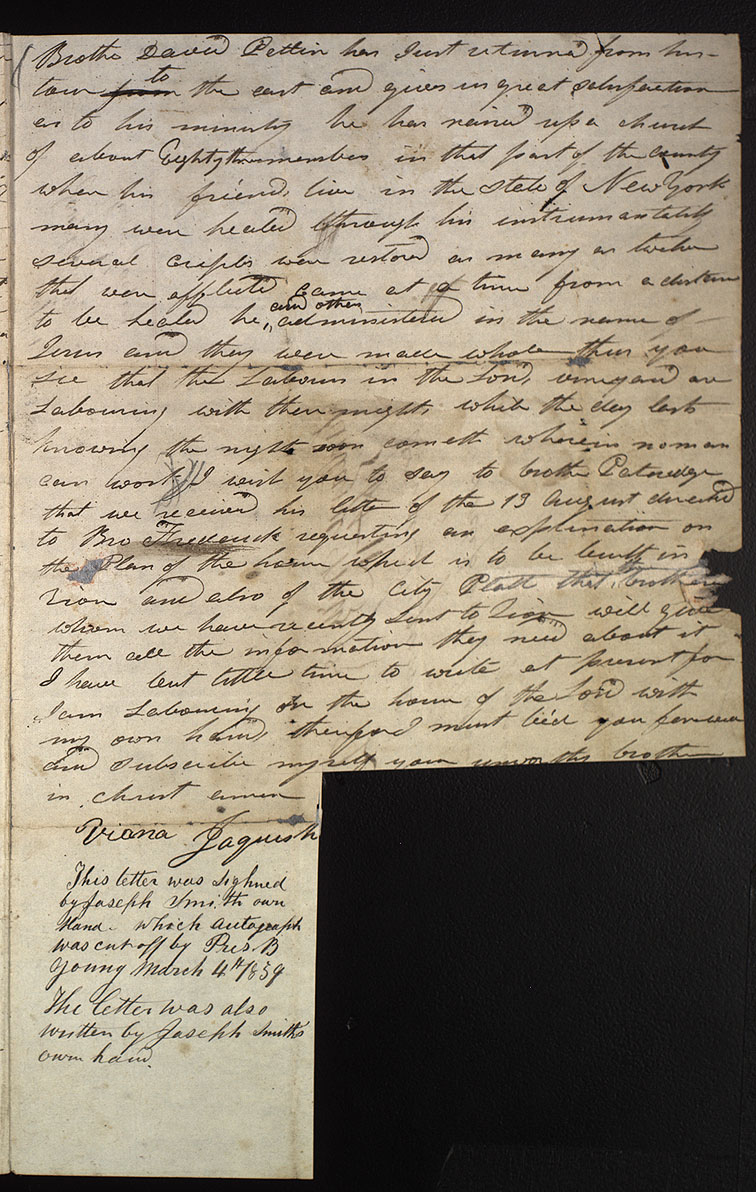 Brothe David Pettin has Just returned from his
tour from to the east and gives us great satisfaction
as to his ministry he has raised up a church
of about Eighty three members in that part of the country
where his friends live in the state of New York
many were healed through his instrumentality
several criples were restored as many as twelve
that were afflicted came at a time from a distance
to be healed he and others administered in the name of
Jesus and they were made whole thus you
see that the Labours in the Lords vineyard are
Labouring with their mights while the day lasts
knowing the night soon cometh wherein no man
can work I wish you to say to brother Patredge
that we received his letter of the 13 August directed
to Bro Frederick requesting an explination on
the Plan of the house which is to be built in
Zion and also of the City Platt the brotheren
whom we have recently sent to Zion will give
them all the information they need about it
I have but little time to write at present for
I am Labouring on the house of the Lord with
my own hands therefore I must bid you farewell
and subscribe myself your unworthy brother
in christ amen
Viana Jaquish
This letter was sighned
by Joseph Smith own
Hand. which autograph
was cut off by Pres. B
Young March 4th 1859
The letter was also
written by Joseph Smith's
own hand.